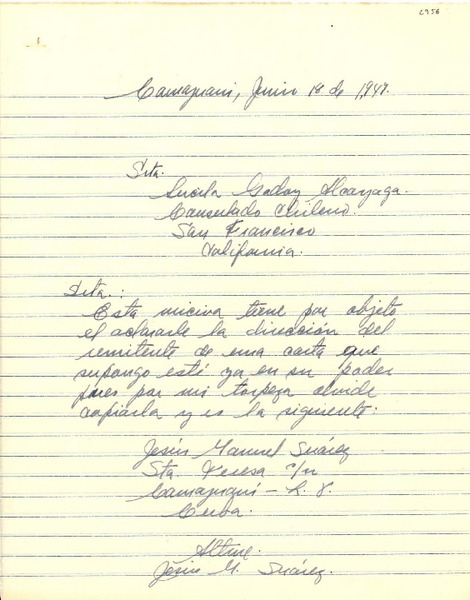 2956
Camajuaní, Junio 18 de 1,947.
Srta.
Lucila Godoy Alcayaga.
Consulado Chileno.
San Francisco
California.
Srta.:
Esta miciva tiene por objeto
el aclararle la dirección del
remitente de una carta que
supongo esté ya en su poder
pues por mi torpeza olvidé
copiarla y es la siguiente:
Jesús Manuel Suárez
Sta Teresa s/n
Camajuaní – L. V.
Cuba.
Attme.
Jesús M. Suárez.